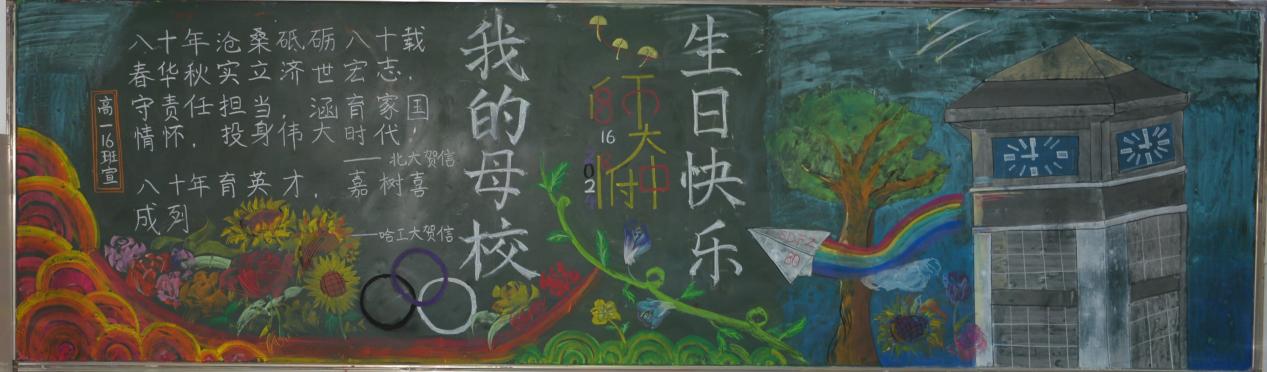 八十年沧桑砥砺八十载
春华秋实立济世宏志，
守责任担当，涵育家国
情怀，投身伟大时代，
——北大贺信
八十年育英才，嘉树喜
成列
——哈工大贺信
高一16班宣
我的母校
生日快乐
师大附中
16
SDFZ
80